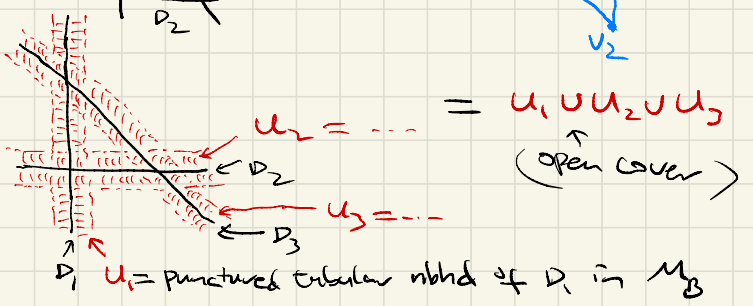 D₂
v₂
= U₁ ∪ U₂ ∪ U₃
U₂ = ...
(open cover)
← D₂
U₃ = ...
D₃
D₁ U₁ = punctured tubular nbhd of D₁ in M_B